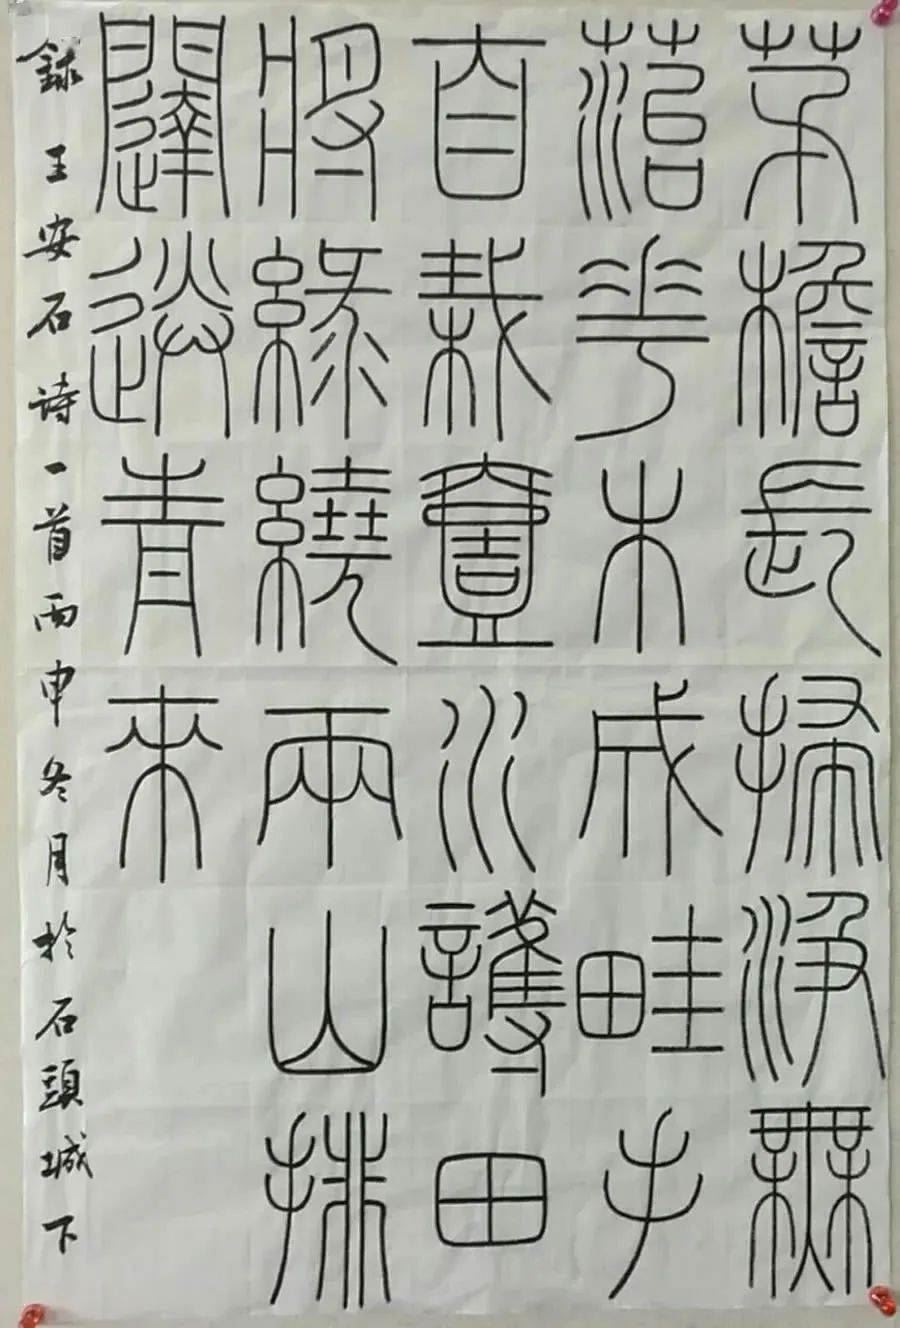 茅檐長掃淨無
菭花木成畦手
自栽壹水護田
將綠繞兩山排
闥送青來
録王安石诗一首丙申冬月於石頭城下